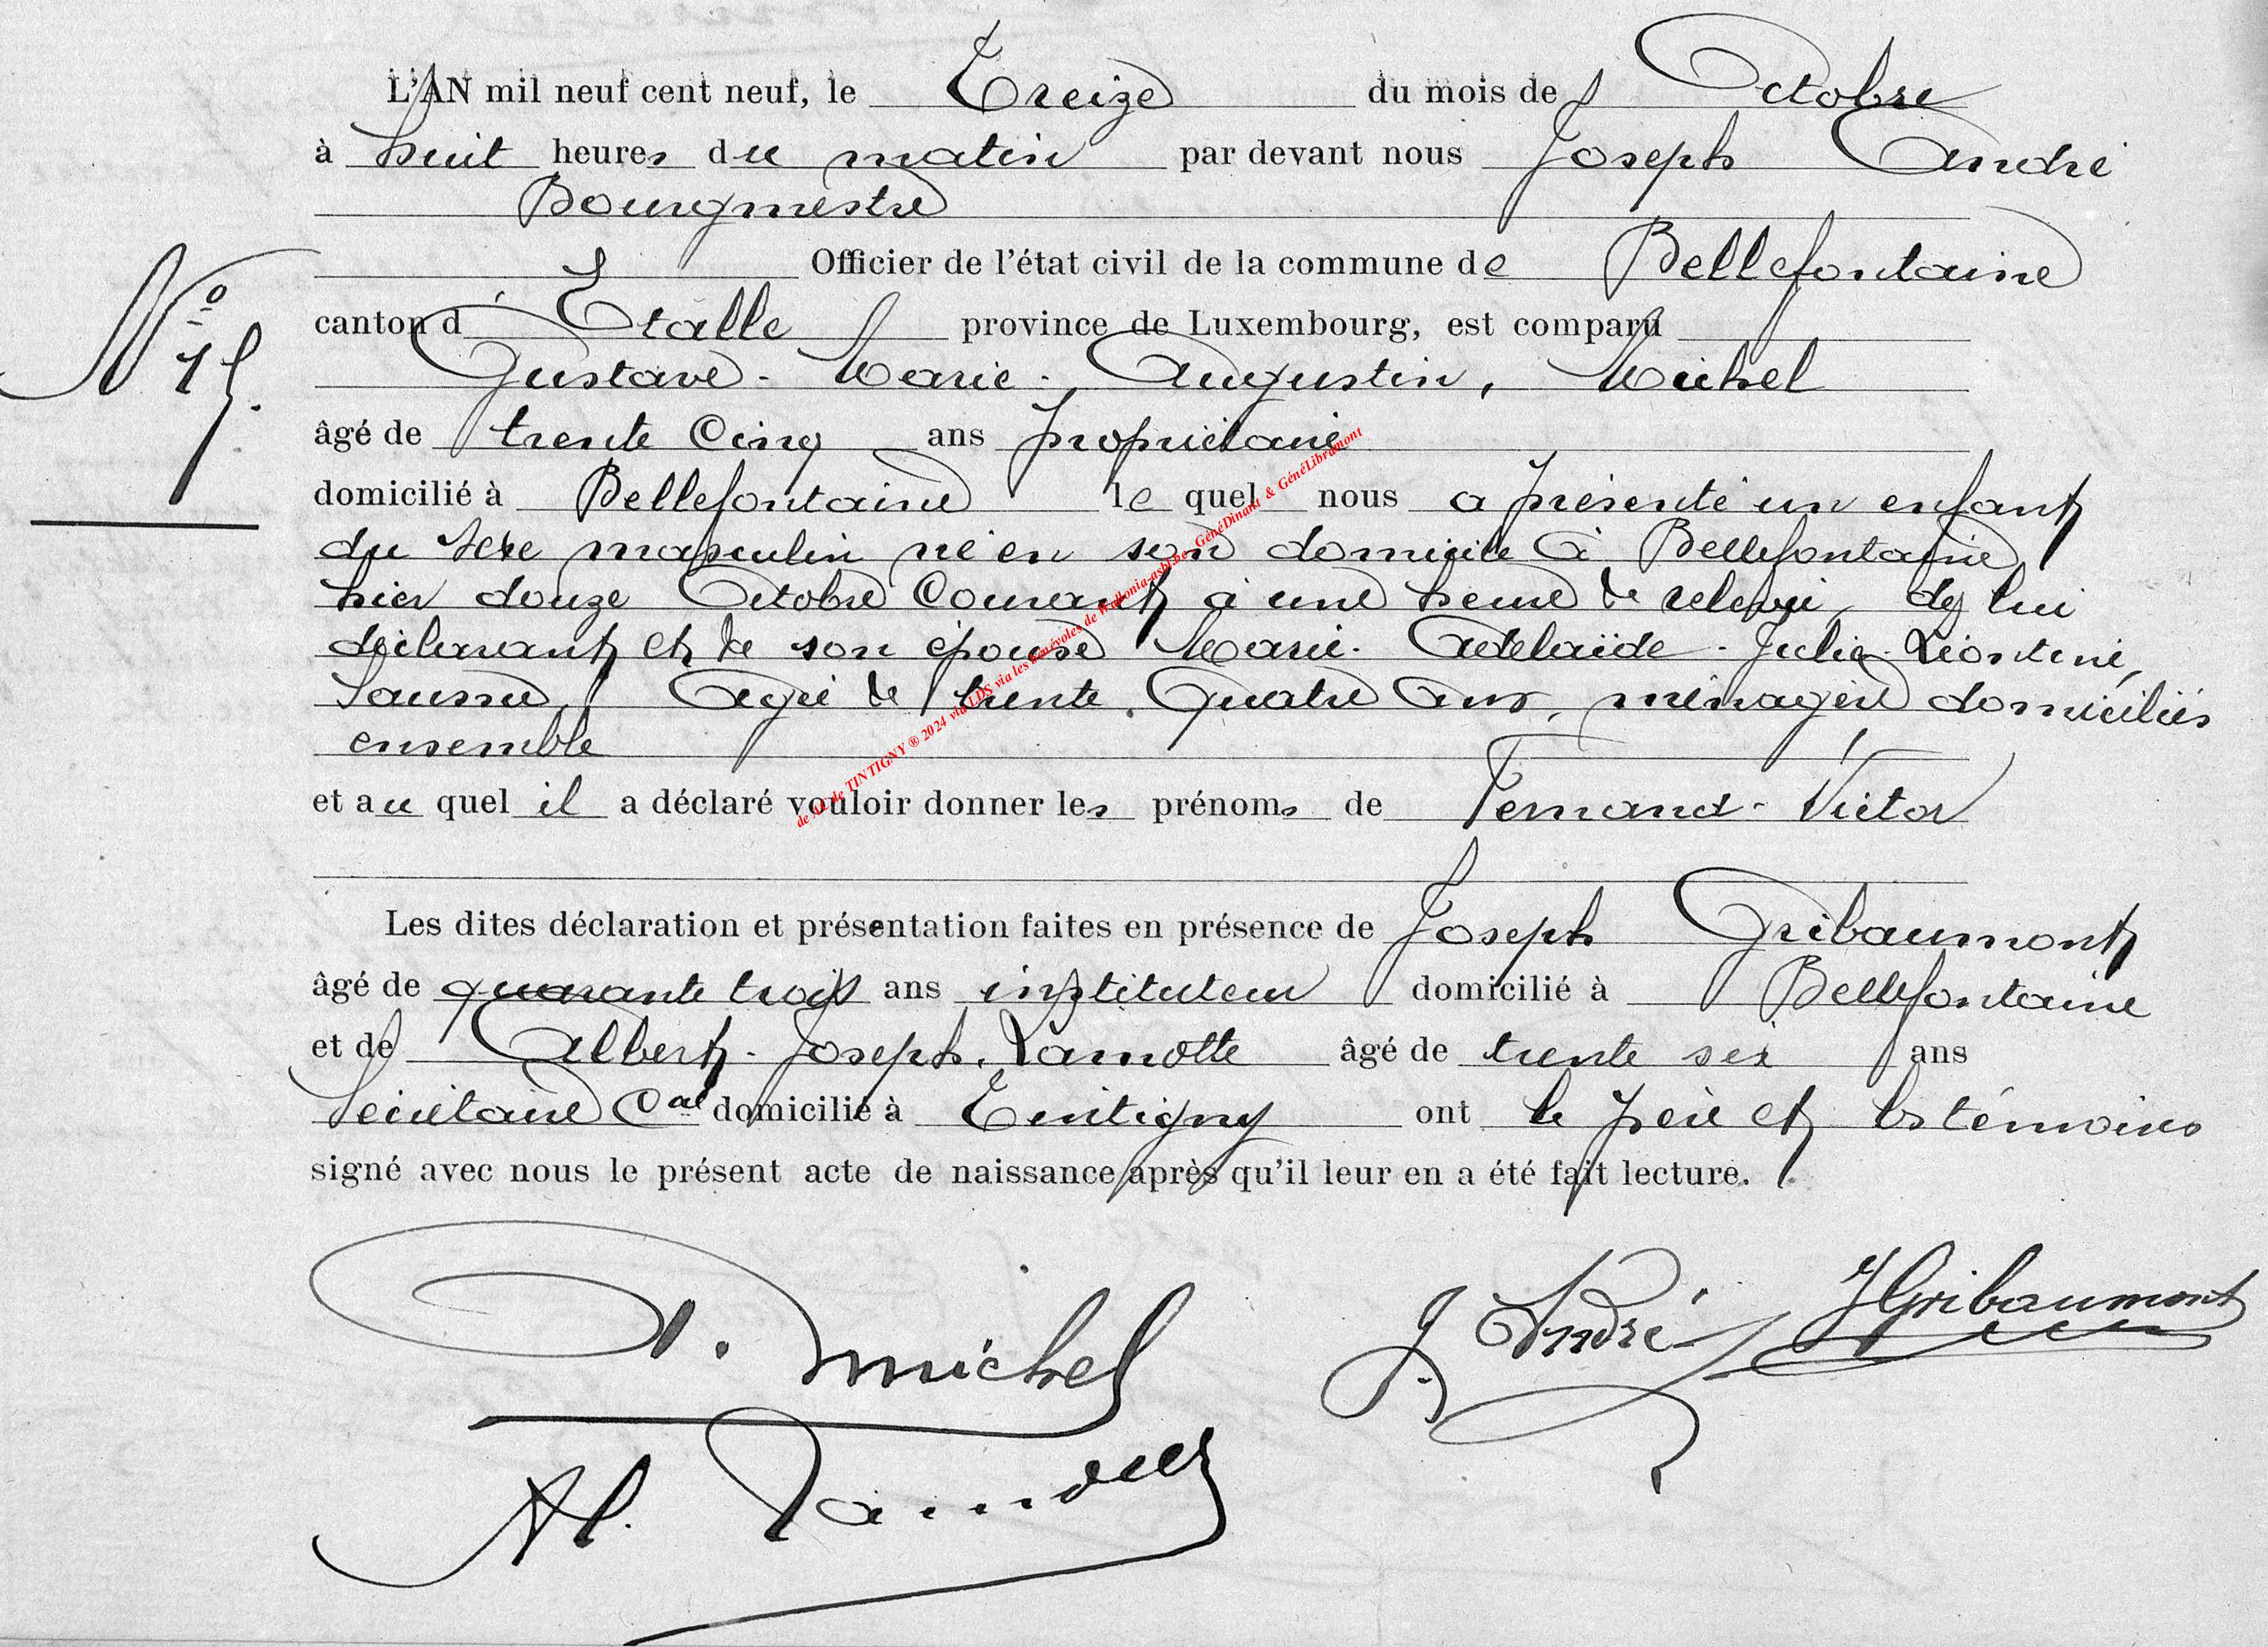 L'AN mil neuf cent neuf, le Treize du mois de Octobre
à huit heures du matin par devant nous Joseph André
Bourgmestre
Officier de l'état civil de la commune de Bellefontaine
canton d Etalle province de Luxembourg, est comparu
Gustave - Marie - Augustin, Michel
N° 15.
âgé de trente Cinq ans propriétaire
domicilié à Bellefontaine le quel nous a présenté un enfant
du sexe masculin né en son domicile à Bellefontaine
hier douze Octobre Courant à une heure de relevée, de lui
déclarant et de son épouse Marie - Adelaïde - Julie - Léontine,
agée de trente quatre ans, ménagère domiciliés
ensemble
et au quel il a déclaré vouloir donner les prénoms de Fernand - Victor
Les dites déclaration et présentation faites en présence de Joseph Gribaumont
âgé de quarante trois ans instituteur domicilié à Bellefontaine
et de Albert - Joseph Lamotte âgé de trente six ans
Secrétaire Cal domicilié à Tintigny ont le père et les témoins
signé avec nous le présent acte de naissance après qu'il leur en a été fait lecture.
michel
J. André
JGribaumont
de AC de TINTIGNY ® 2024 via LDS via les bénévoles de Wallonia-asbl.be - GénéDinant & GénéLibramont